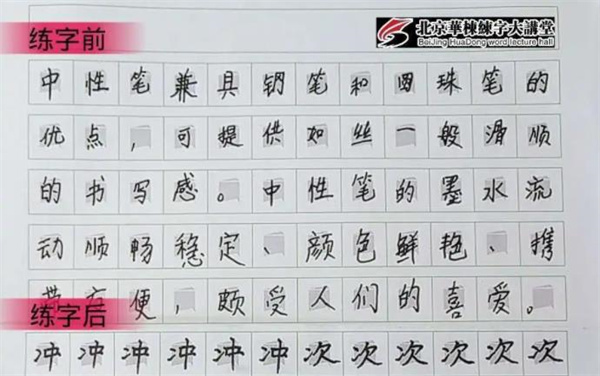 练字前
北京華棟練字大講堂
BeiJing HuaDong word lecture hall
中性笔兼具钢笔和园珠笔的
优点,可提供如丝一般滑顺
的书写感。中性笔的墨水流
动顺畅稳定、颜色鲜艳、携
带方便,颇受人们的喜爱。
练字后
冲冲冲冲冲冲次次次次次次